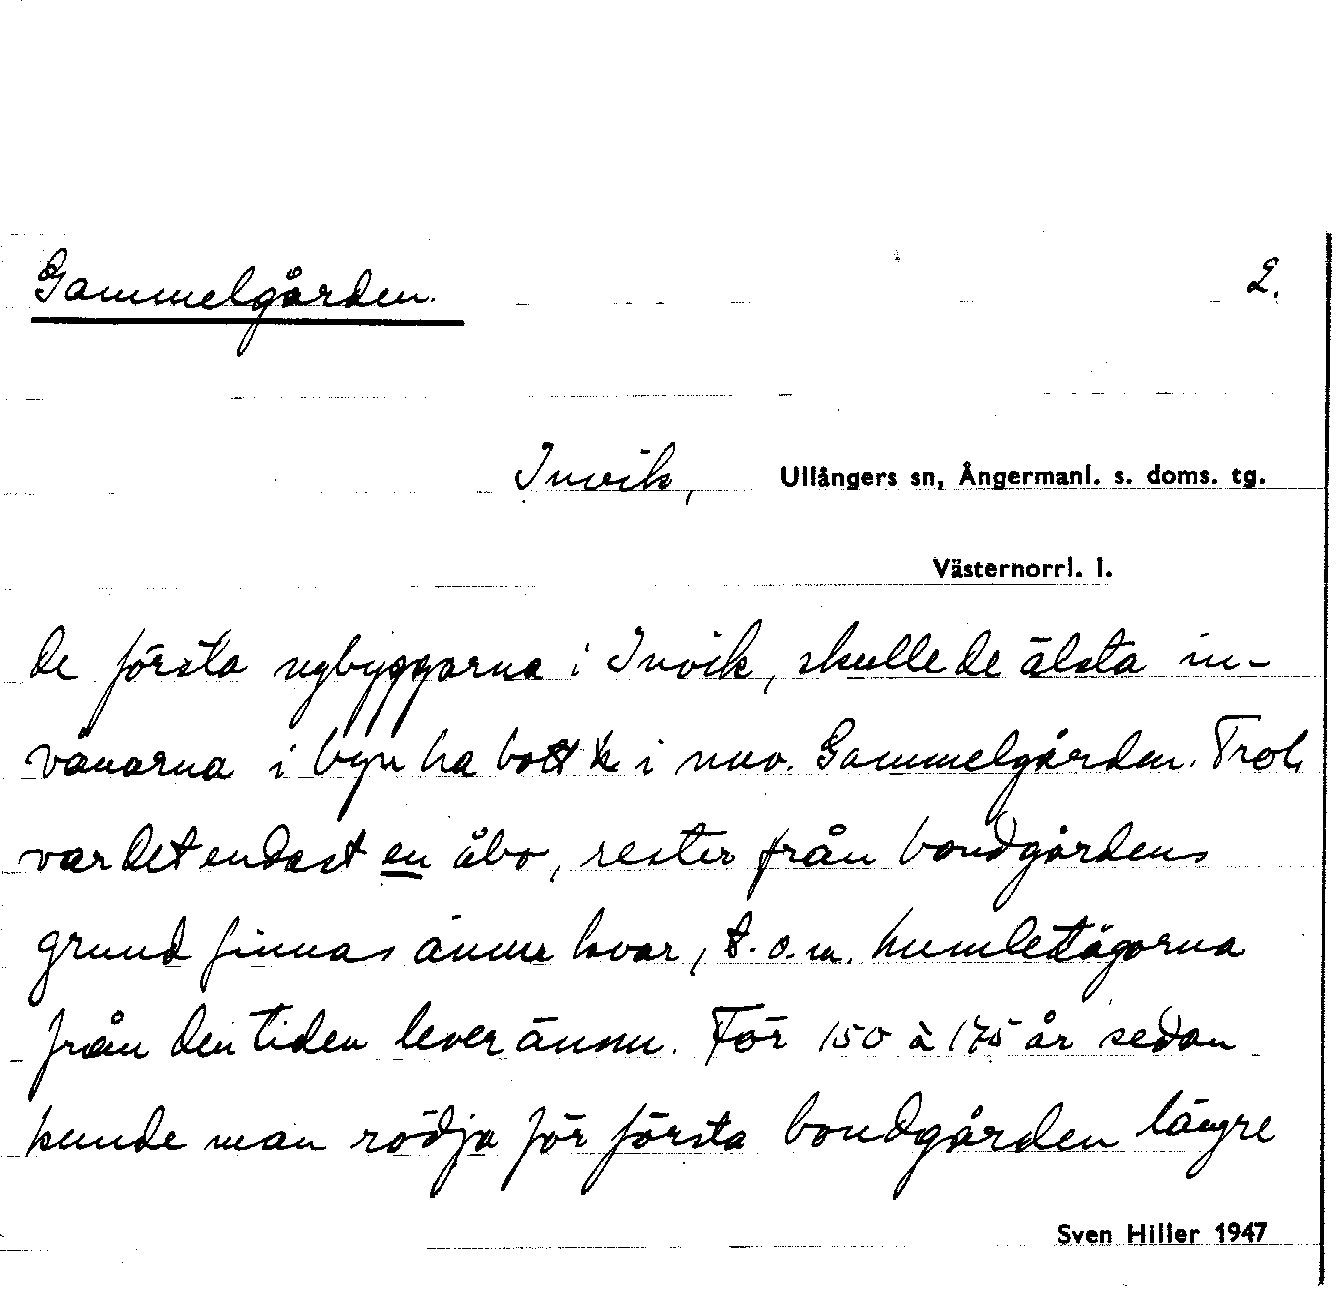 Gammelgården. 2.
Invik, Ullångers sn, Ångermanl. s. doms. tg.
Västernorrl. l.
de första nybyggarna i Invik, skulle de älsta in-
vånarna i byn ha bott i nuv. Gammelgården. Trol.
var det endast en åbo, rester från bondgårdens
grund finnas ännu kvar, t.o.m. humletågorna
från den tiden lever ännu. För 150 à 175 år sedan
kunde man rödja för första bondgården längre
Sven Hiller 1947